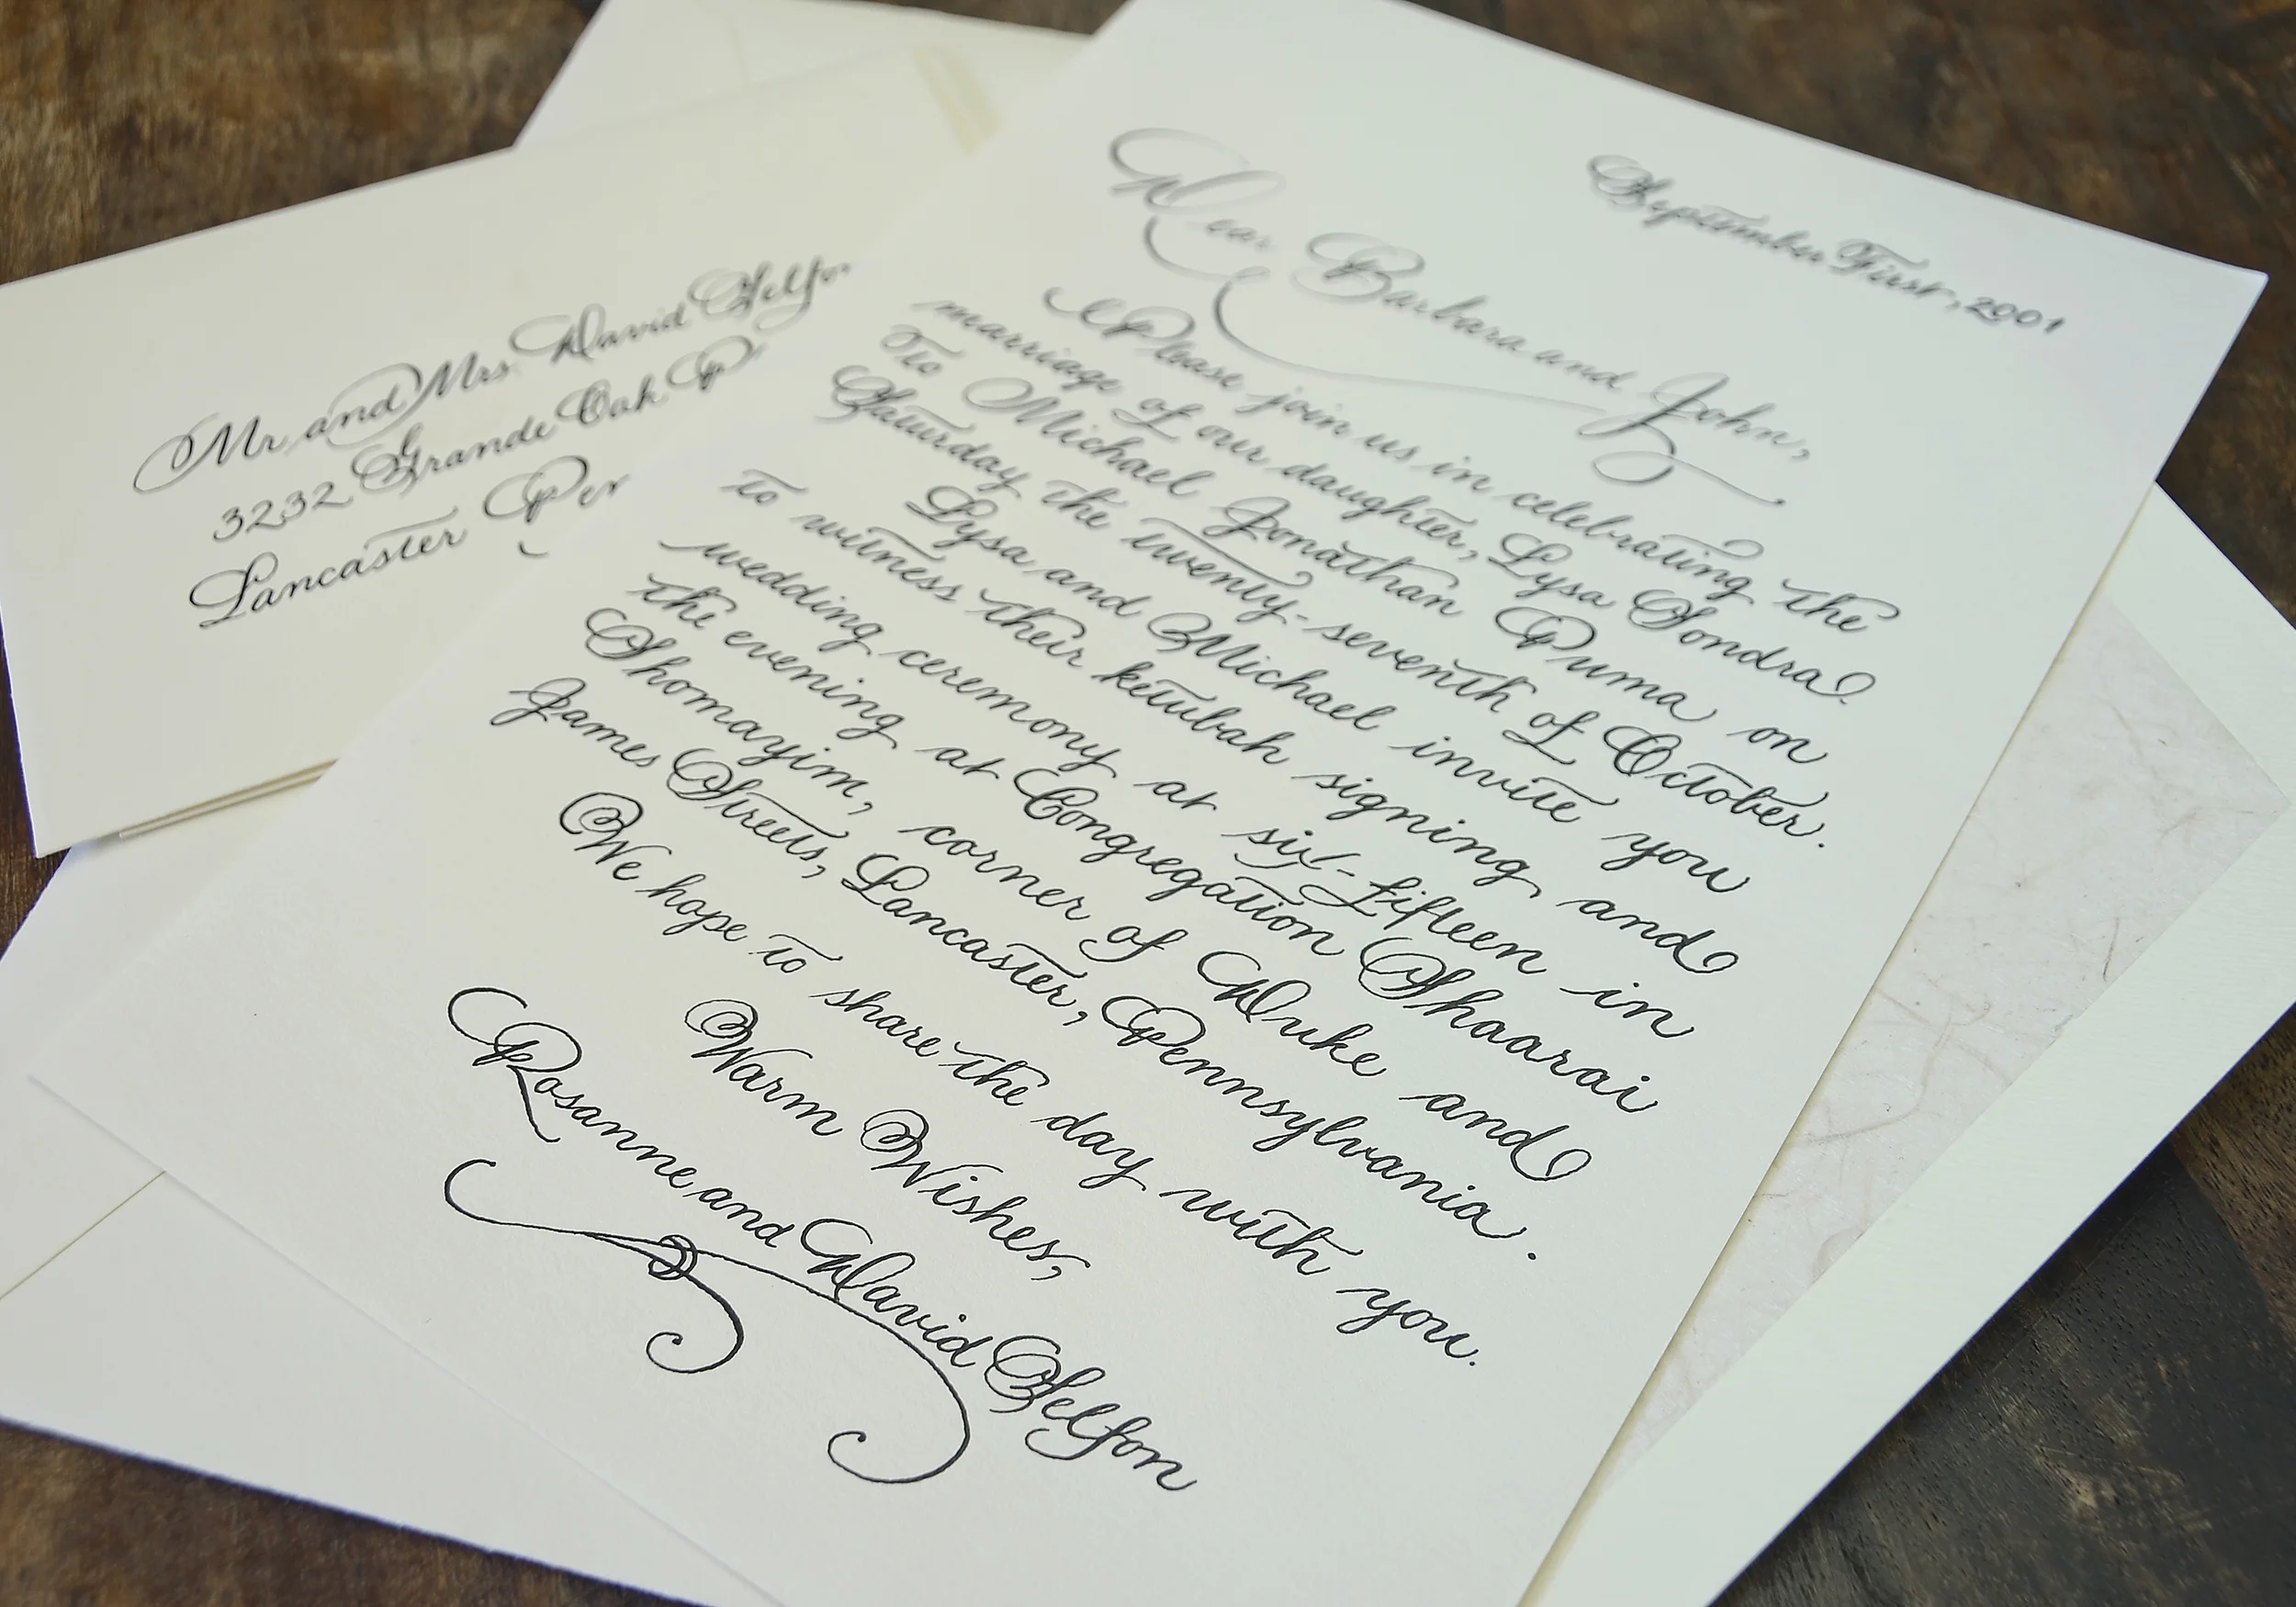 Mr. and Mrs. David Selfon
3232 Grande Oak P
Lancaster Pen
September First, 2001
Dear Barbara and John,
Please join us in celebrating the
marriage of our daughter, Lysa Sondra
To Michael Jonathan Puma on
Saturday the twenty-seventh of October.
Lysa and Michael invite you
to witness their ketubah signing and
wedding ceremony at six-fifteen in
the evening at Congregation Shaarai
Shomayim, corner of Duke and
James Streets, Lancaster, Pennsylvania.
We hope to share the day with you.
Warm Wishes,
Rosanne and David Selfon